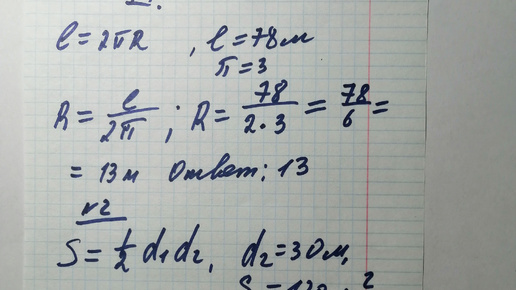 l = 2πR , l = 78 м
π = 3
R = l/2π ; R = 78/2·3 = 78/6 =
= 13 м Ответ: 13
№2
S = 1/2 d₁ d₂, d₂ = 30 м,